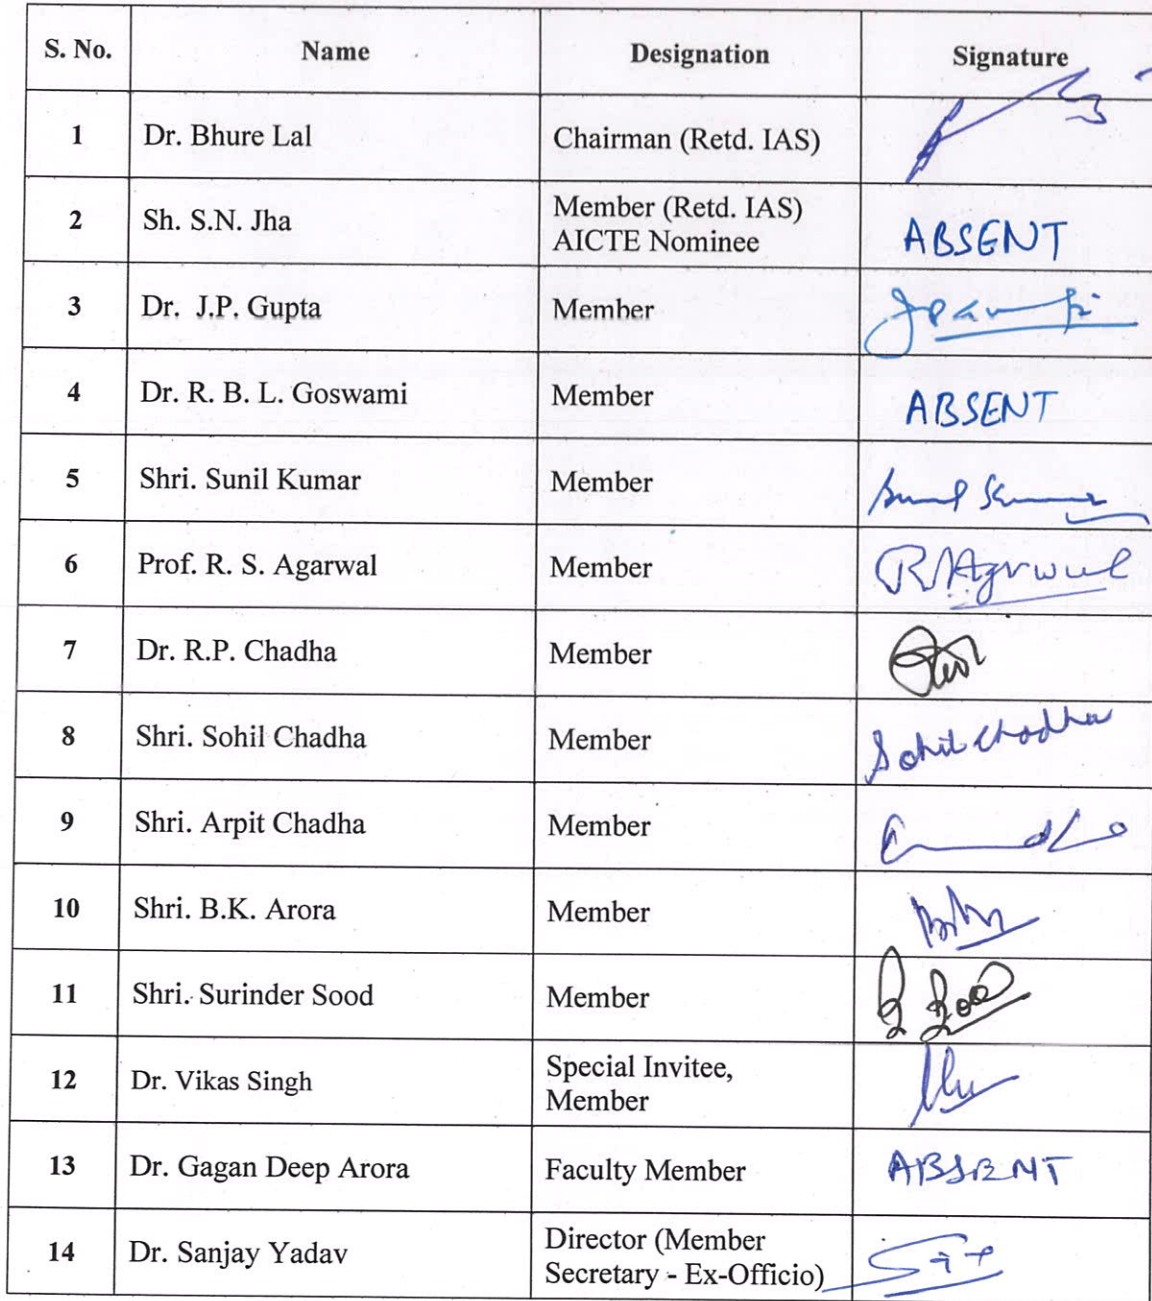 S. No. Name Designation Signature
1 Dr. Bhure Lal Chairman (Retd. IAS)
2 Sh. S.N. Jha Member (Retd. IAS)
AICTE Nominee ABSENT
3 Dr. J.P. Gupta Member
4 Dr. R. B. L. Goswami Member ABSENT
5 Shri. Sunil Kumar Member
6 Prof. R. S. Agarwal Member
7 Dr. R.P. Chadha Member
8 Shri. Sohil Chadha Member Sohil Chadha
9 Shri. Arpit Chadha Member
10 Shri. B.K. Arora Member
11 Shri. Surinder Sood Member
12 Dr. Vikas Singh Special Invitee,
Member
13 Dr. Gagan Deep Arora Faculty Member ABSENT
14 Dr. Sanjay Yadav Director (Member
Secretary - Ex-Officio)